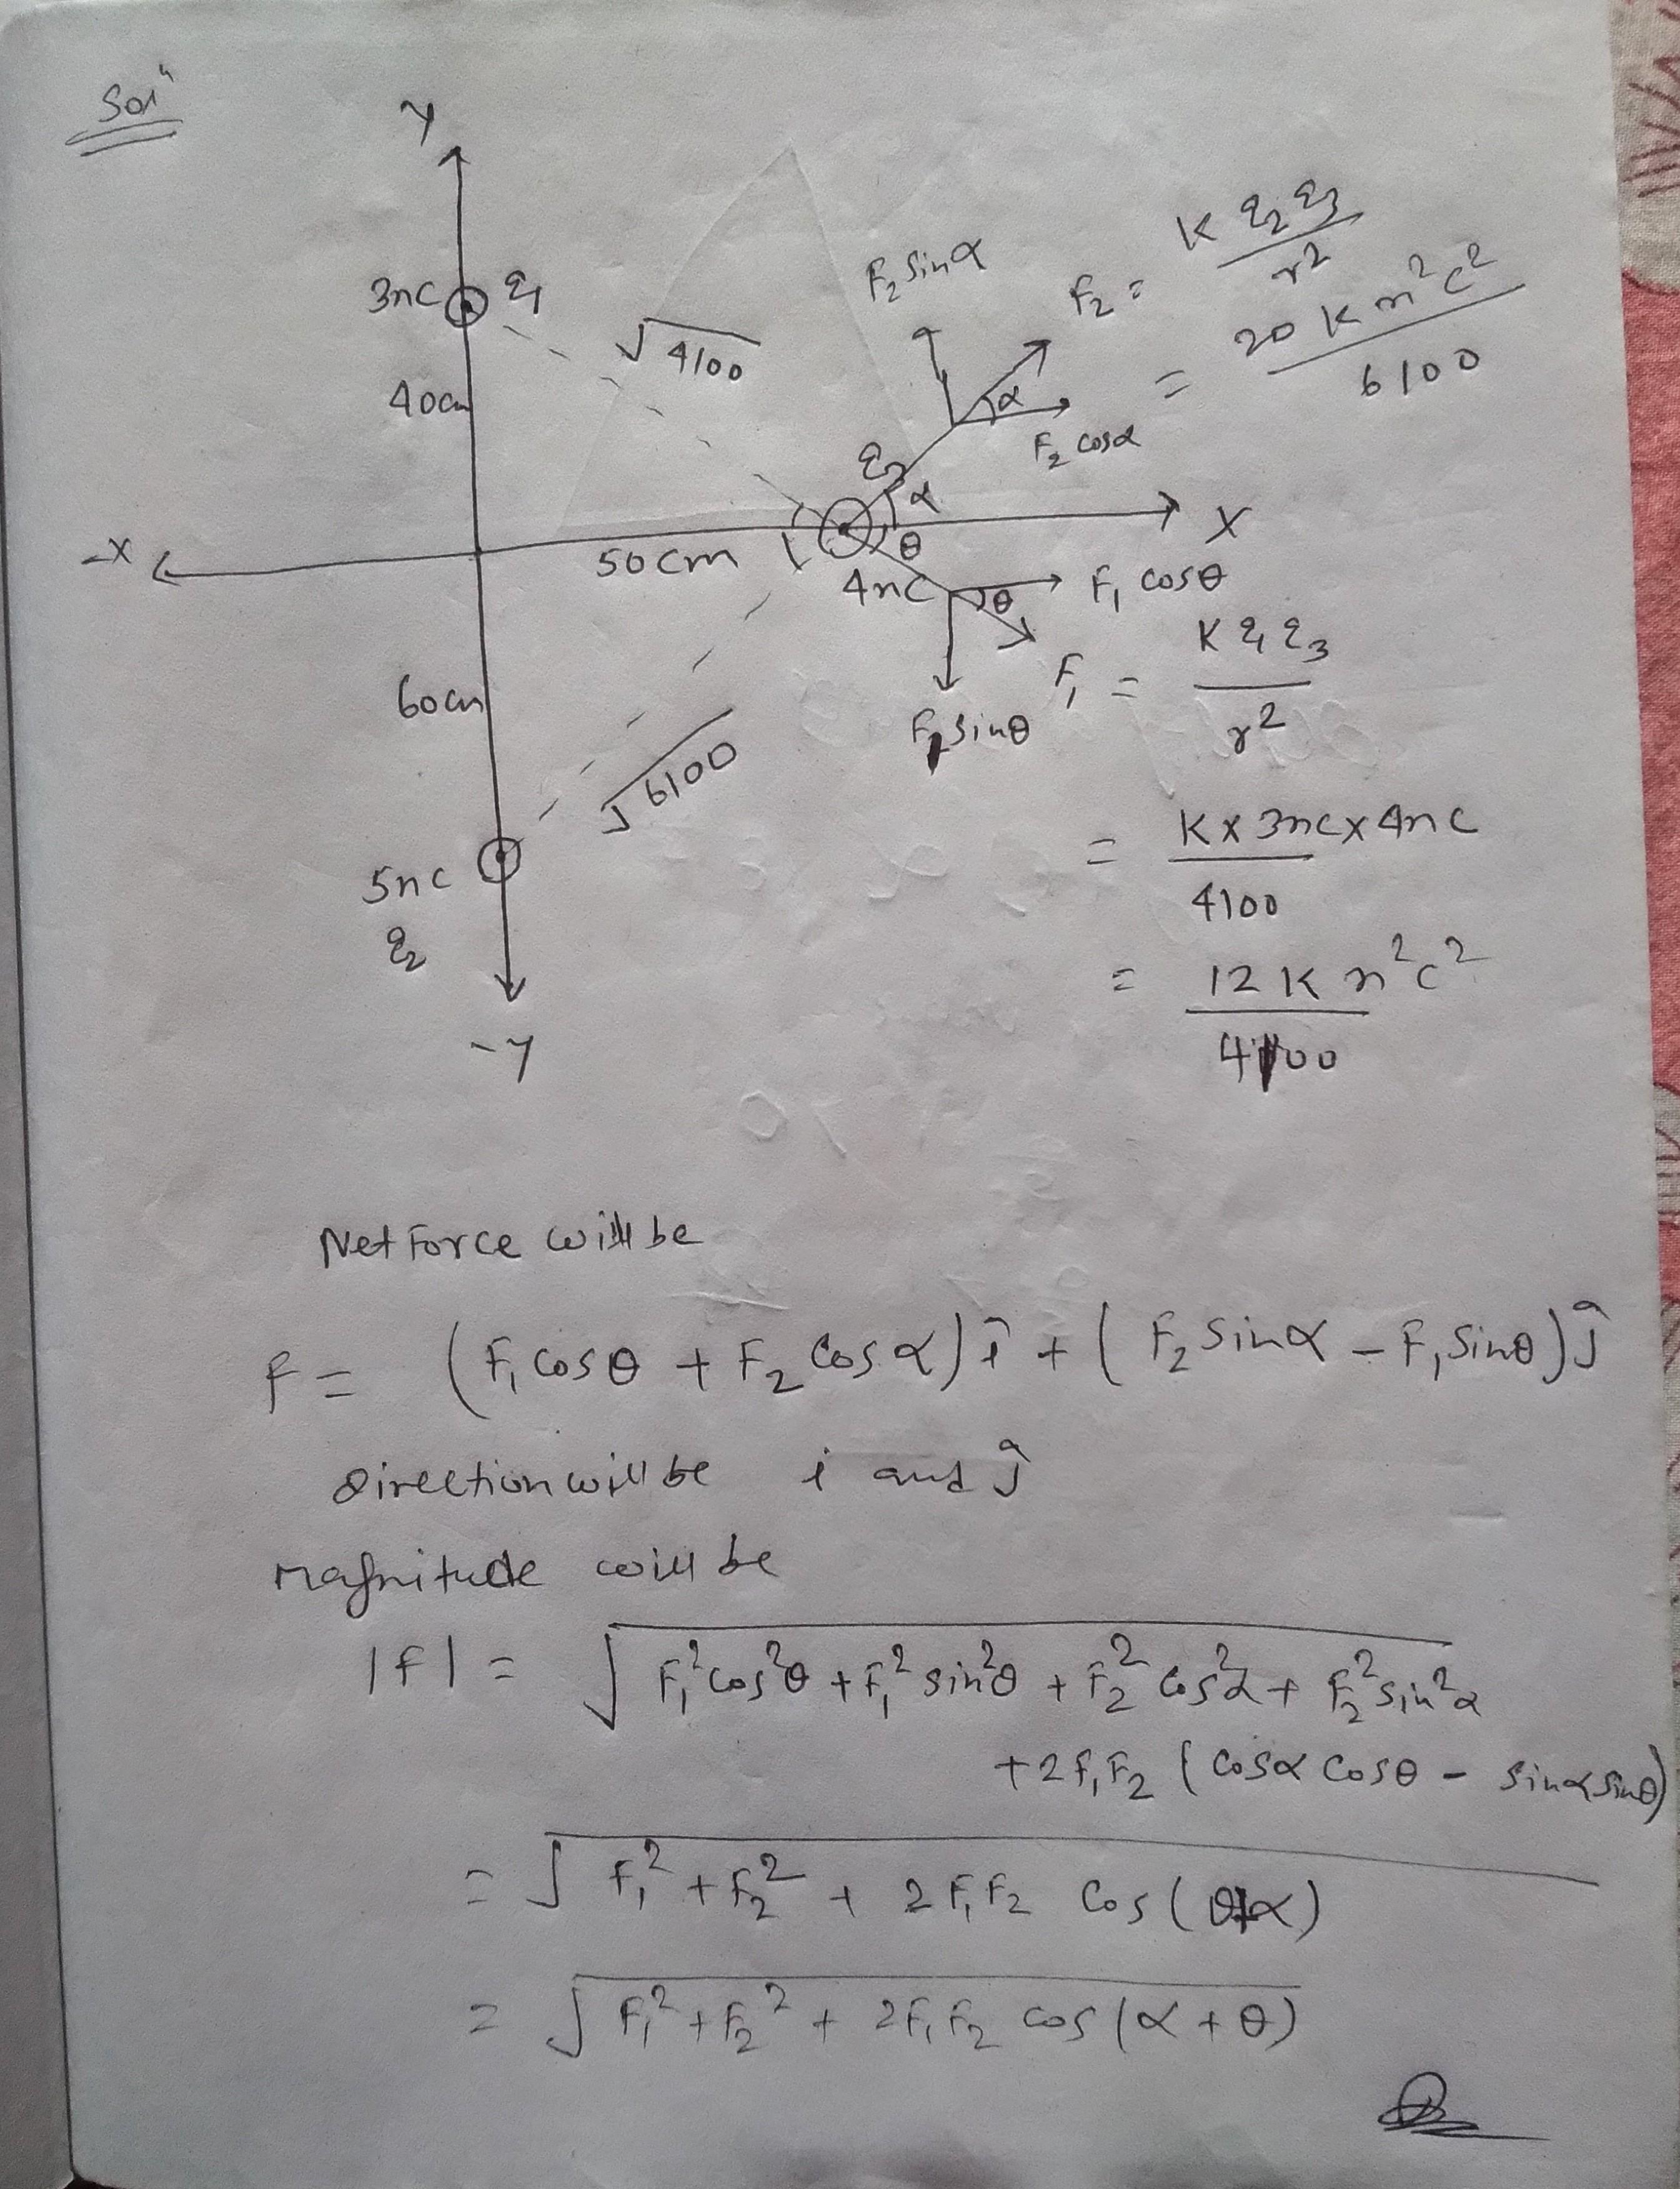 Solⁿ
Y
3nC q₁
40cm
√4100
F₂ sinα
F₂ = K q₂ q₃ / r²
= 20 K n²c² / 6100
α
F₂ cosα
q₃
α
-X
50cm
θ
X
4nC
θ
F₁ cosθ
F₁ sinθ
F₁ = K q₁ q₃ / r²
60cm
√6100
= K x 3nc x 4nc / 4100
5nc
q₂
= 12 K n²c² / 4100
-Y
Net Force will be
F = (F₁ cosθ + F₂ cosα) î + (F₂ sinα - F₁ sinθ) ĵ
Direction will be i and ĵ
Magnitude will be
|F| = √F₁²cos²θ + F₁² sin²θ + F₂² cos²α + F₂² sin²α
+ 2F₁F₂ (cosα cosθ - sinα sinθ)
= √F₁² + F₂² + 2F₁F₂ cos(θ+α)
= √F₁² + F₂² + 2F₁F₂ cos(α + θ)